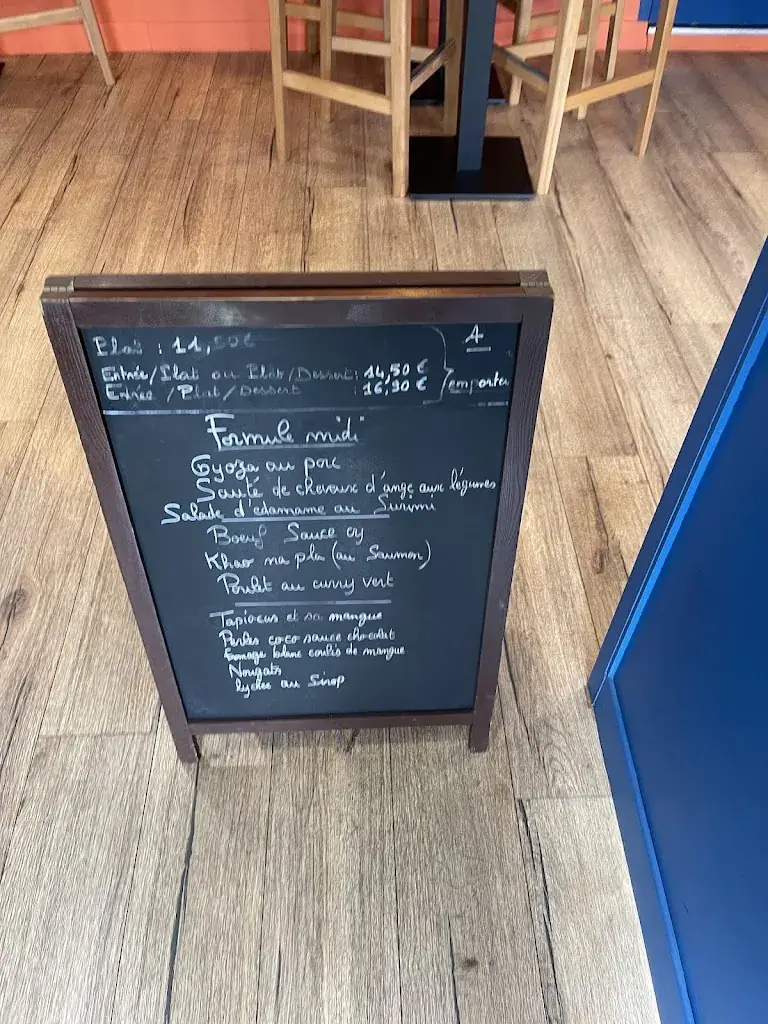 Plat : 11,50€
A
Entrée/Plat ou Plat/Dessert: 14,50 €
Entrée /Plat/Dessert : 16,90 €
emporter
Formule midi
Gyoza au porc
Sauté de cheveux d'ange aux légumes
Salade d'edamame au Surimi
Boeuf Sauce oy
Khao na pla (au Saumon)
Poulet au curry vert
Tapiocas et sa mangue
Perles coco sauce chocolat
fromage blanc coulis de mangue
Nougats
lychee au Sirop